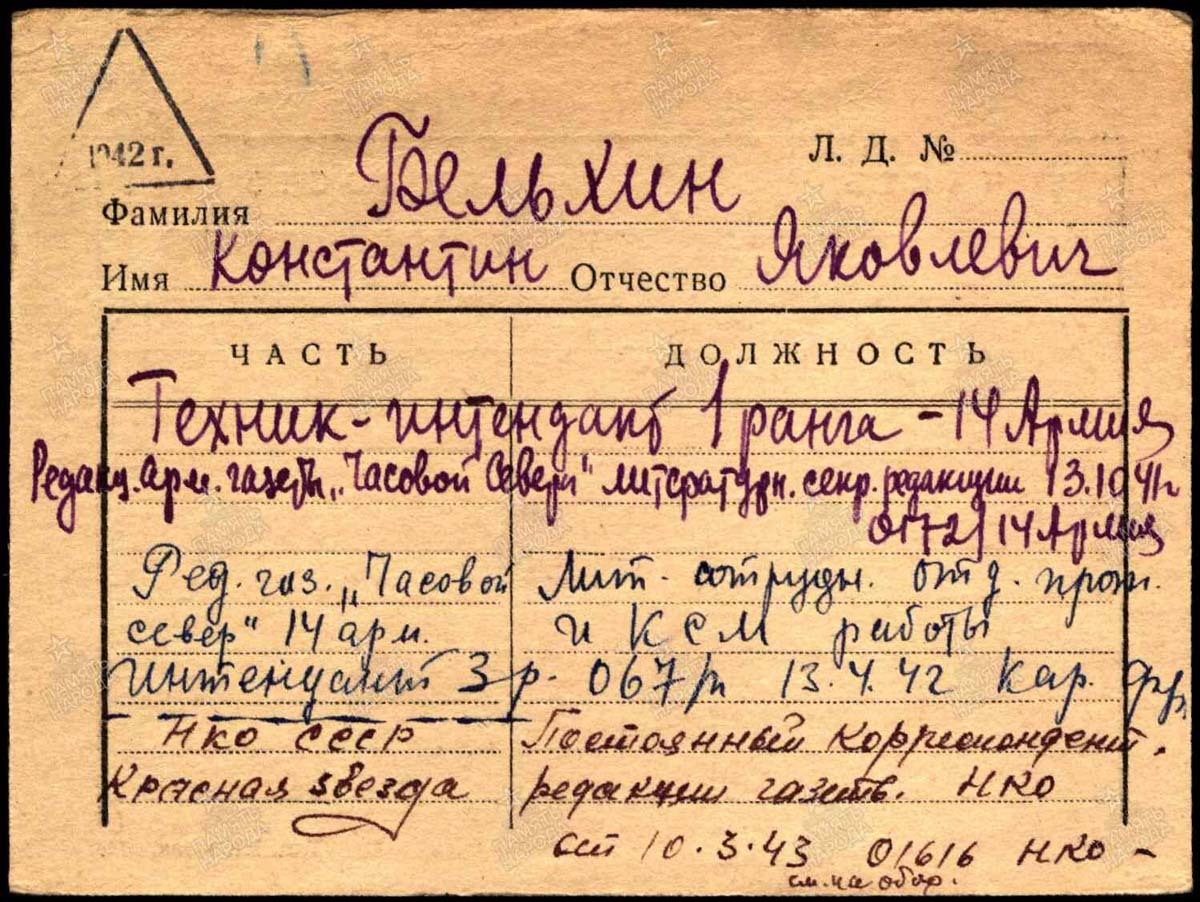 1942 г.
Л. Д. №
Фамилия Бельхин
Имя Константин Отчество Яковлевич
ЧАСТЬ ДОЛЖНОСТЬ
Техник-интендант 1 ранга - 14 Армия
Редакц. арм. газеты „Часовой Севера" литературн. секр. редакции 13.10 41 г
0172/ 14 Армия
Ред. газ. „Часовой Лит. сотрудн. отд.
север" 14 арм. и КСМ работы
Интендант 3 р. 067/п 13.4.42 Кар. фр.
НКО СССР Постоянный корреспондент.
Красная звезда редакции газеты. НКО
от 10.3.43 01616 НКО -
см. на обор.